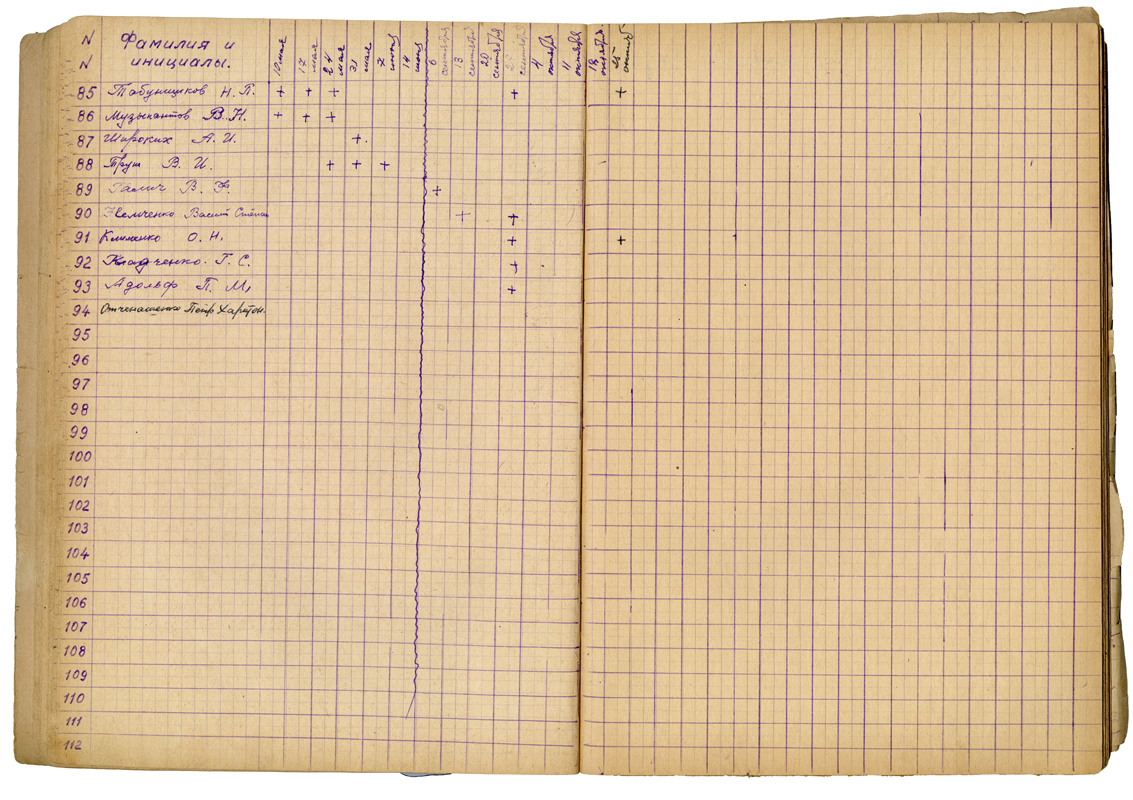 N N Фамилия и инициалы. 10 мая 17 мая 24 мая 31 мая 7 июня 14 июня 6 сентября 13 сентября 20 сентября 27 сентября 4 октября 11 октября 18 октября 25 октяб
85 Табунщиков Н. П. + + + + +
86 Музыкантов В. Н. + + +
87 Широких А. И. +
88 Труш В. И. + + +
89 Галич В. Ф. +
90 Немченко Васил Степан + +
91 Клименко О. Н. + +
92 Кладченко Г. С. +
93 Адольф П. М. +
94 Отченашенко Петр Харитон.
95
96
97
98
99
100
101
102
103
104
105
106
107
108
109
110
111
112